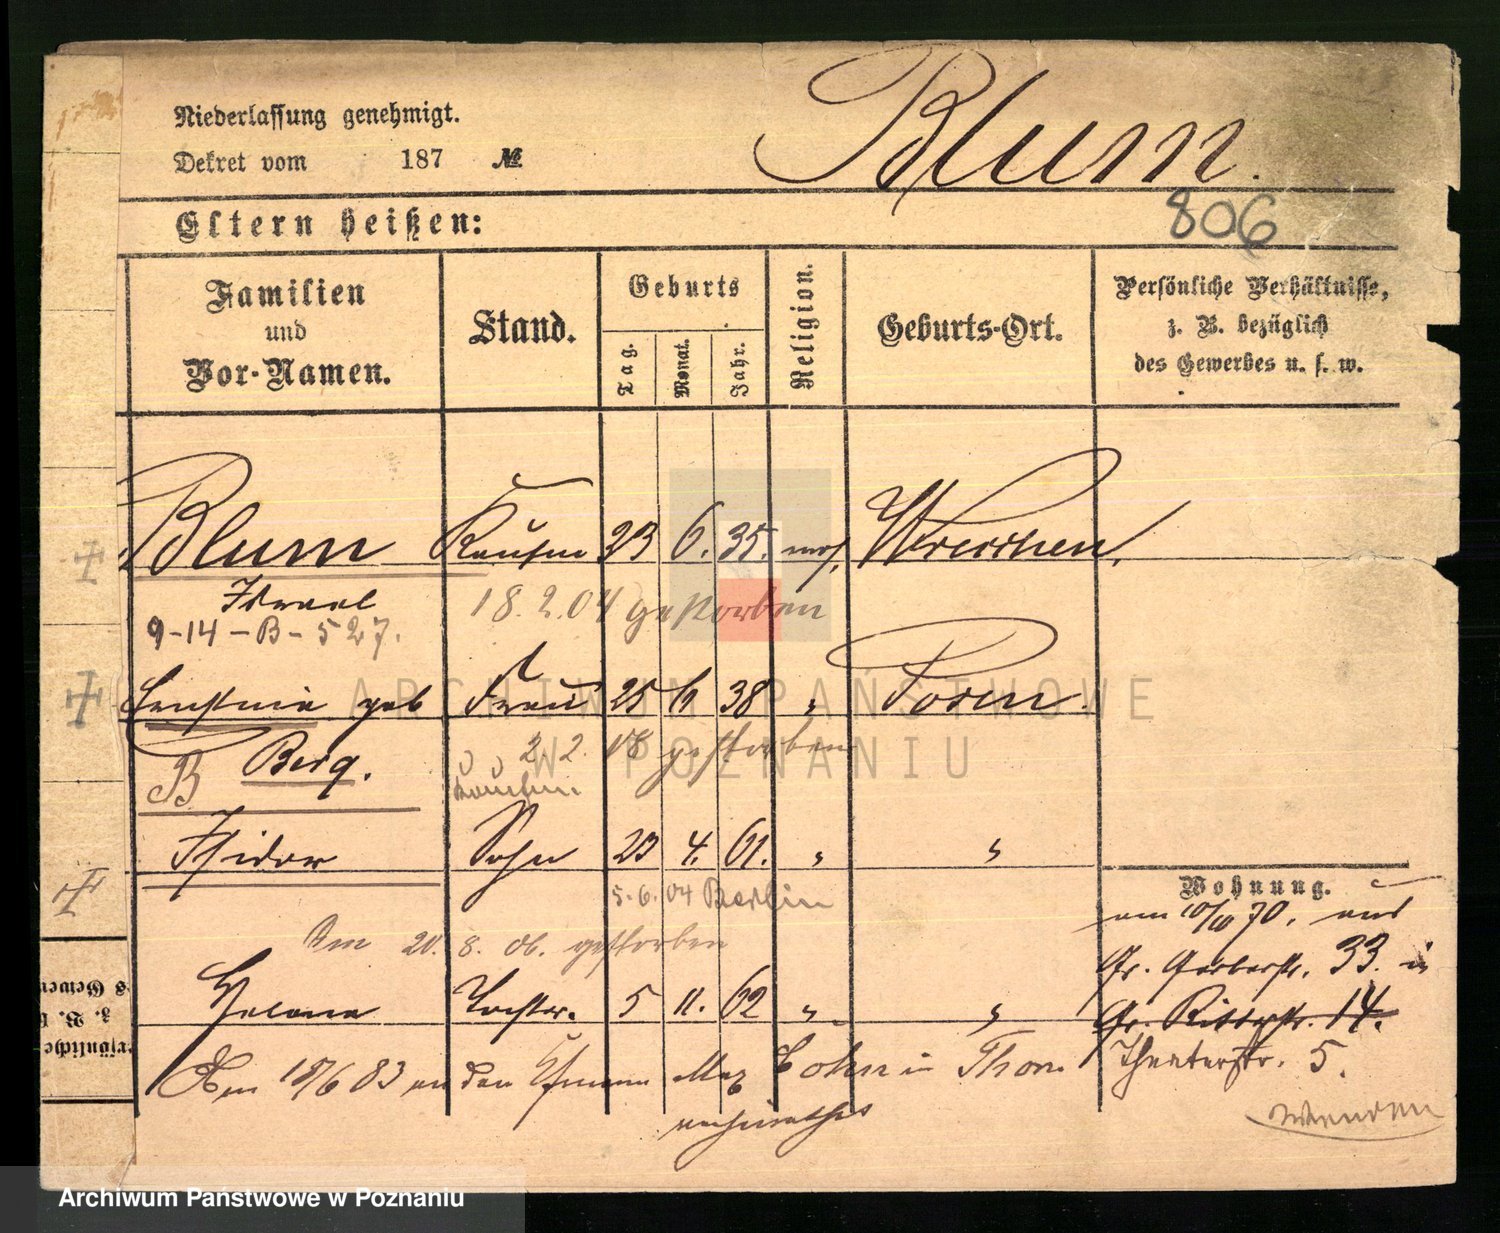 Blum.
Niederlassung genehmigt.
Dekret vom 187 №
806
Eltern heißen:
Familien und Vor-Namen.
Stand.
Geburts
Tag. Monat. Jahr.
Religion.
Geburts-Ort.
Persönliche Verhältnisse,
z. B. bezüglich
des Gewerbes u. s. w.
Blum Kaufm 23 6. 35. mos. Wreschen
Israel 18.2.04 gestorben
9-14-B-527.
Ernstine geb Frau 25 6 38 " Posen.
Berg. 2. 2. 18 gestorben
B
Isidor Sohn 23 4. 61. " "
5.6.04 Berlin
Am 20. 8. 06. gestorben
Helena Tochter. 5 11. 62 " "
Am 18/6 83 an den Max Cohn in Thorn
verheirathet
Wohnung.
am 10/10 70. aus
Gr. Gerberstr. 33. in
Gr. Ritterstr. 14.
Theaterstr. 5.
wenden
ARCHIWUM PAŃSTWOWE
W POZNANIU
Archiwum Państwowe w Poznaniu